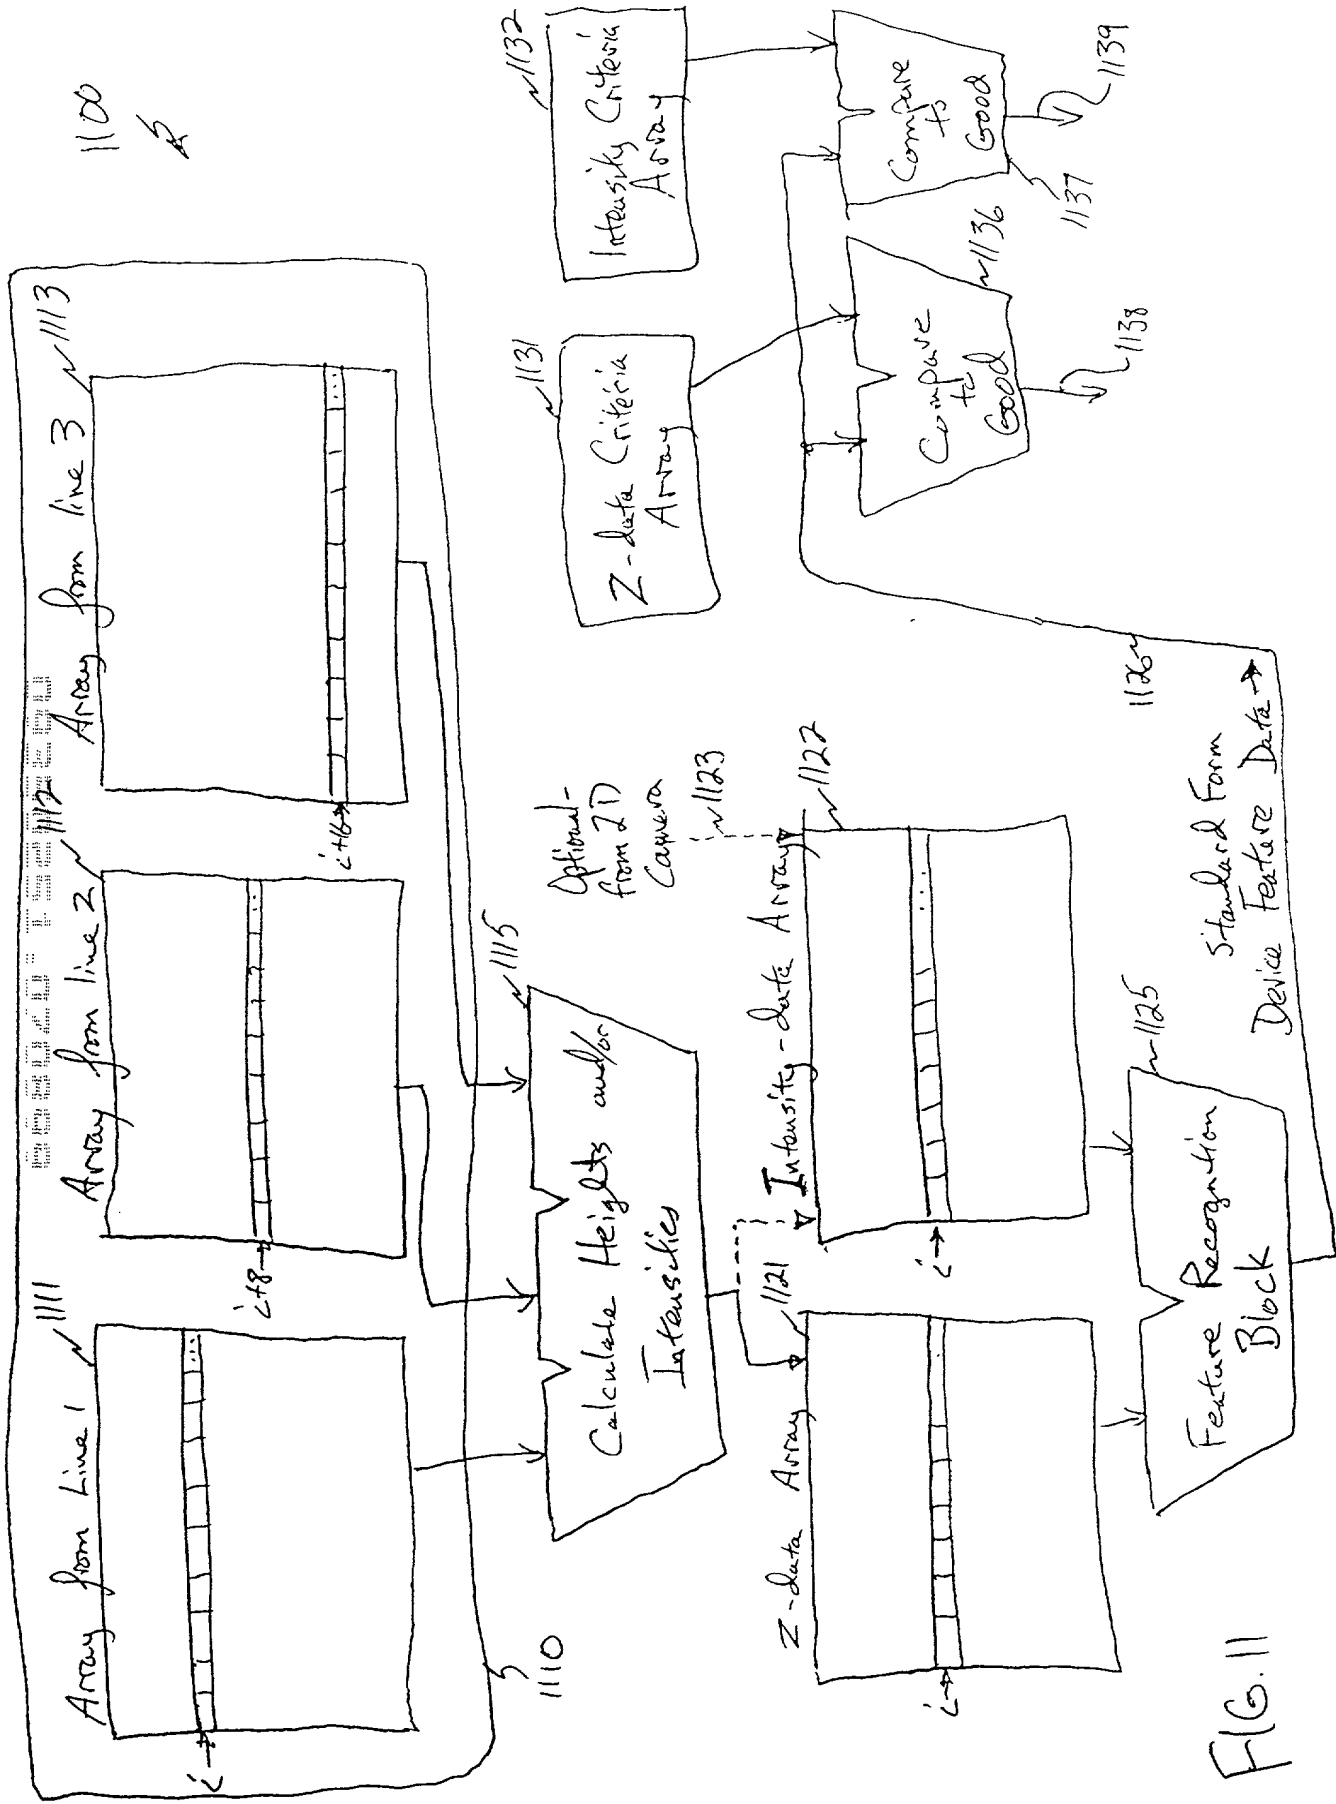 1100
Array from Line 1
1111
i
Array from line 2
1112
i+8
Array from line 3
1113
i+16
1110
Calculate Heights and/or
Intensities
1115
Optional-
from 2D
Camera
1123
Z-data Array
1121
i
Intensity-data Array
1122
i
Feature Recognition
Block
1125
Standard Form
Device Feature Data
1126
Z-data Criteria
Array
1131
Intensity Criteria
Array
1132
Compare
to
Good
1136
1138
Compare
to
Good
1137
1139
FIG. 11